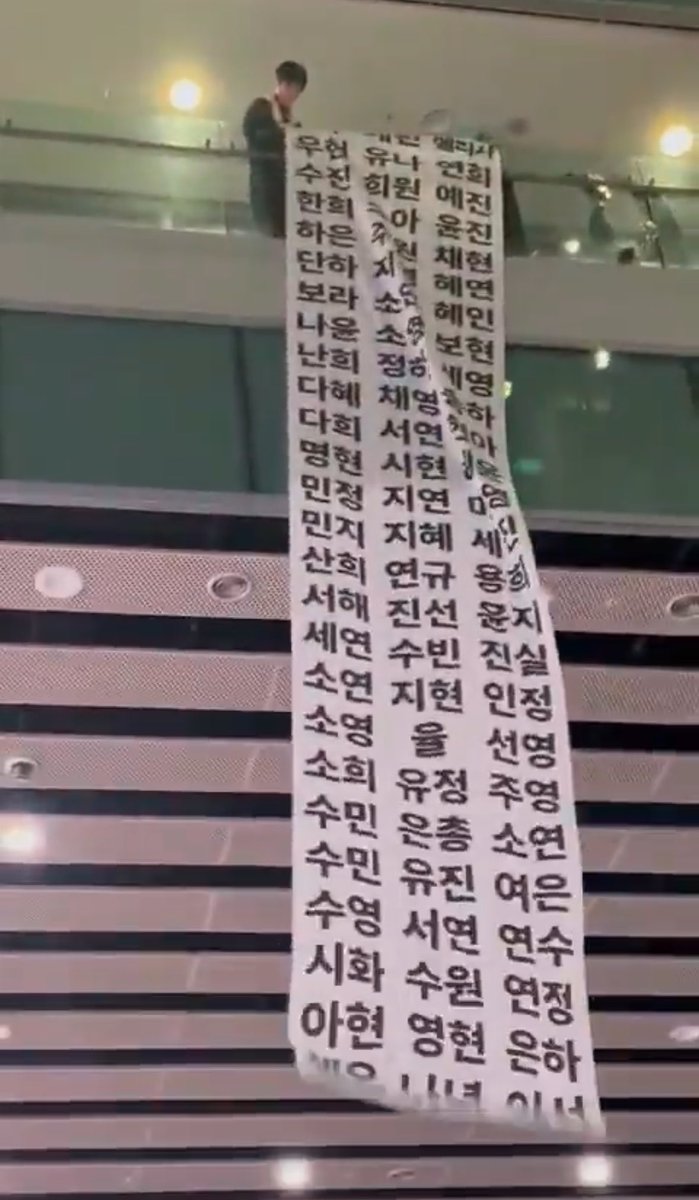 우현 유나 연희
수진 희원 예진
한희 윤진
하은 채현
단하 혜연
보라 혜인
나윤 보현
난희 세영
다혜 채영
다희 서연
명현 시현
민정 지연
민지 지혜
산희 연규 용희
서해 진선 윤지
세연 수빈 진실
소연 지현 인정
소영 율 선영
소희 유정 주영
수민 은총 소연
수민 유진 여은
수영 서연 연수
시화 수원 연정
아현 영현 은하